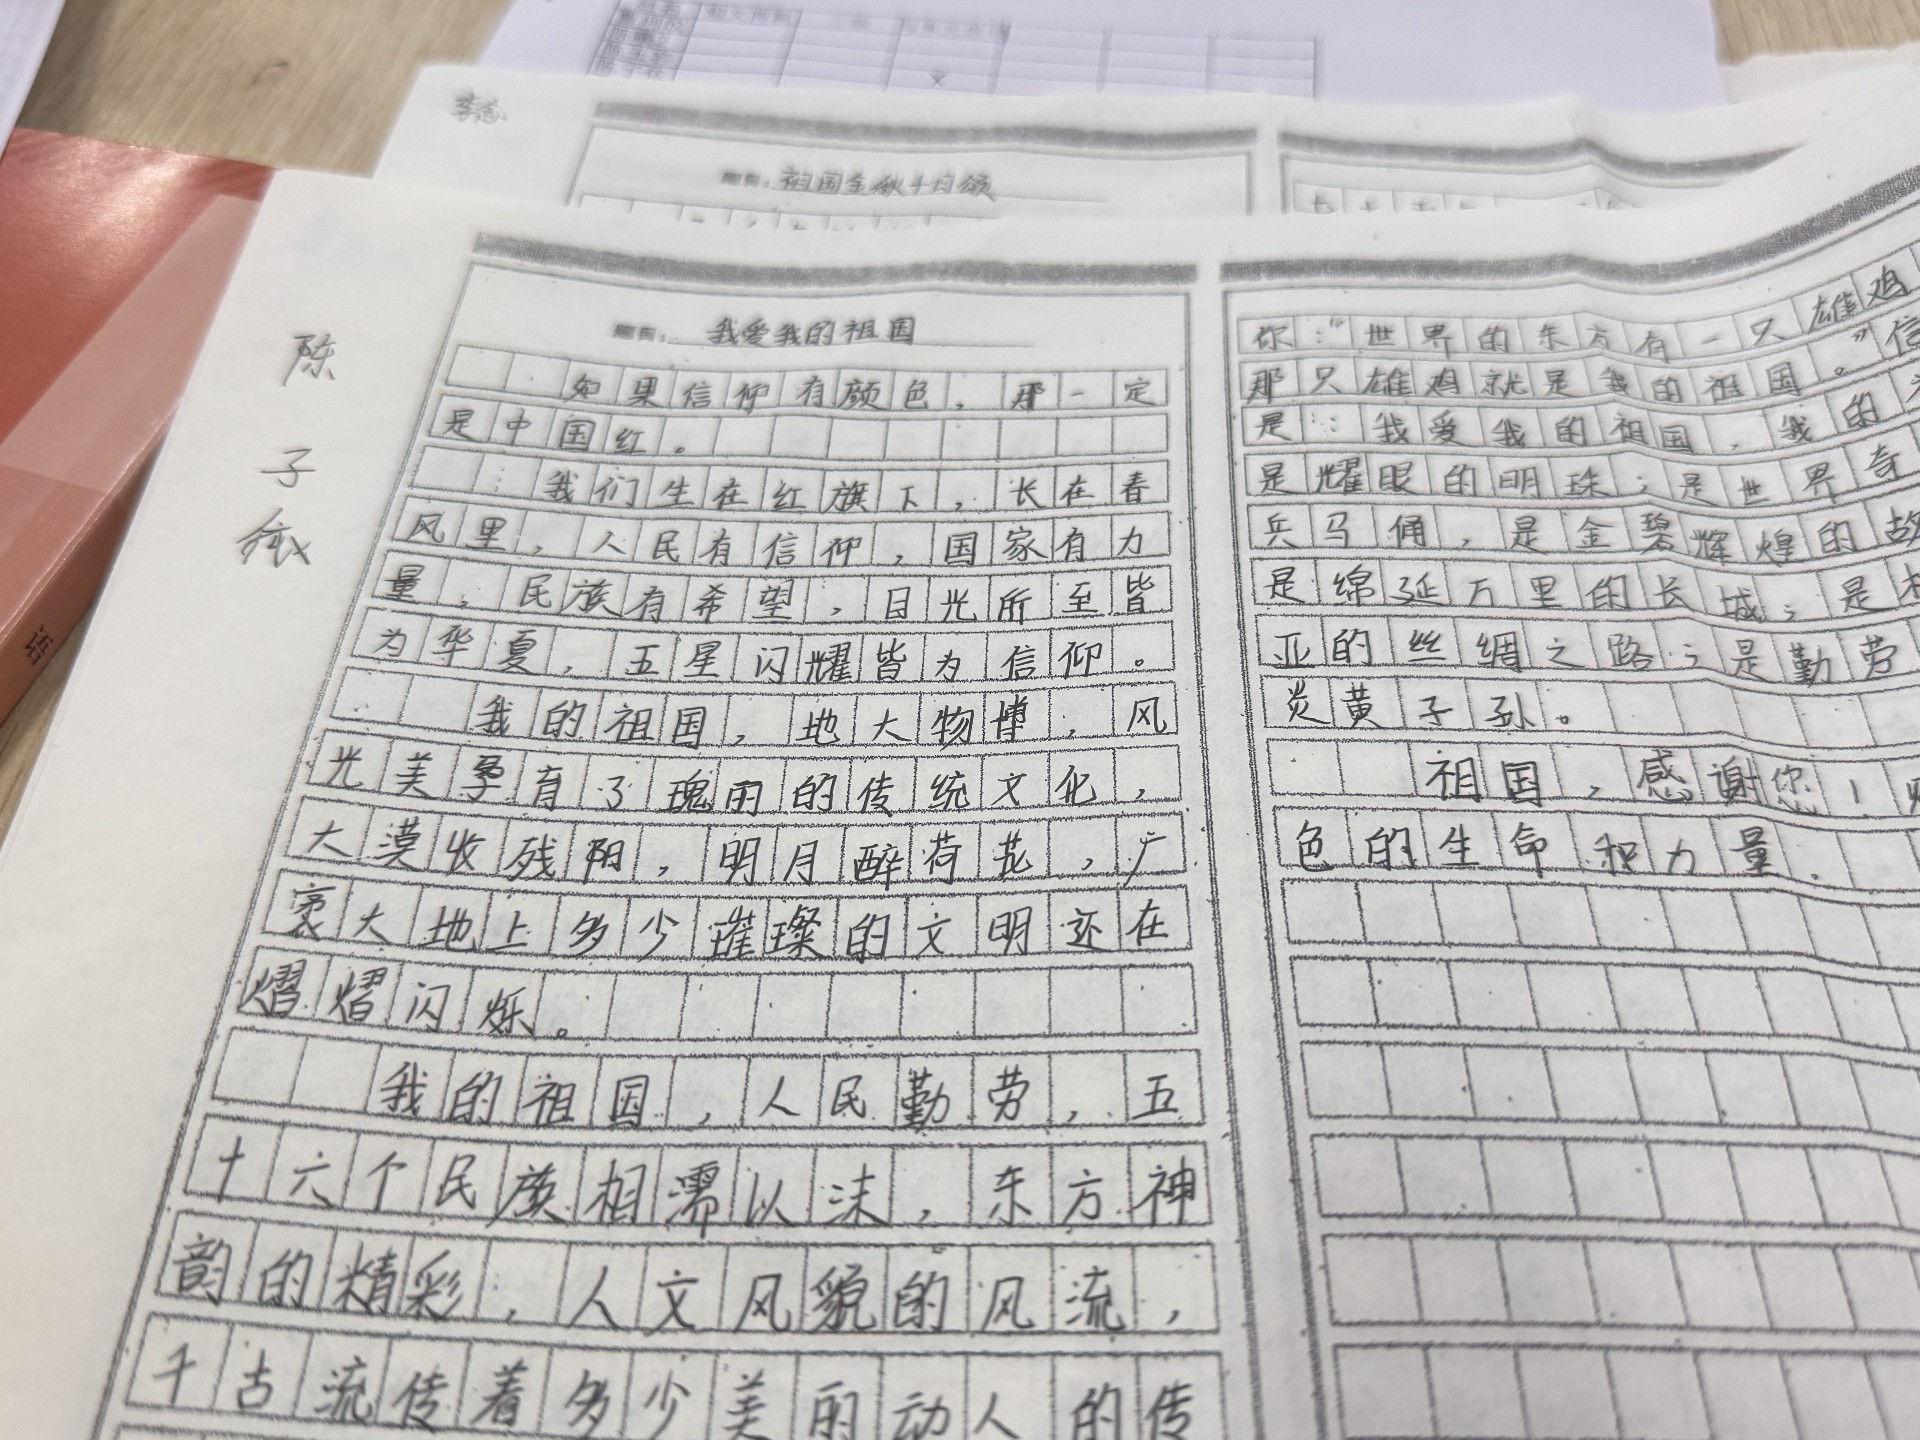 题目：祖国金秋十月颂
陈
子
题目：我爱我的祖国
如果信仰有颜色，那一定
是中国红。
我们生在红旗下，长在春
风里，人民有信仰，国家有力
量，民族有希望，目光所至皆
为华夏，五星闪耀皆为信仰。
我的祖国，地大物博，风
光美孕育了瑰丽的传统文化，
大漠收残阳，明月醉荷花，广
袤大地上多少璀璨的文明还在
熠熠闪烁。
我的祖国，人民勤劳，五
十六个民族相濡以沫，东方神
韵的精彩，人文风貌的风流，
千古流传着多少美丽动人的传
你：“世界的东方有一只雄鸡
那只雄鸡就是我的祖国。”信
是：我爱我的祖国，我的
是耀眼的明珠；是世界奇
兵马俑，是金碧辉煌的故
是绵延万里的长城；是
亚的丝绸之路；是勤劳
炎黄子孙。
祖国，感谢您！
色的生命和力量.
语